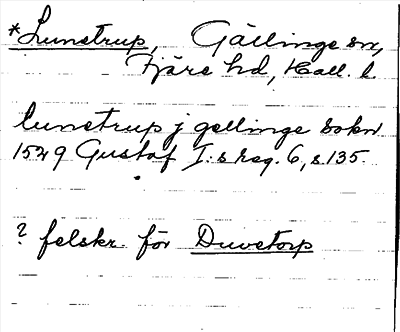 *Lunstrup, Gällinge sn,
Fjäre hd, Hall. l.
lunstrup j gellinge sokn
1529 Gustaf I:s reg. 6, s 135.
? felskr. för Duvetorp